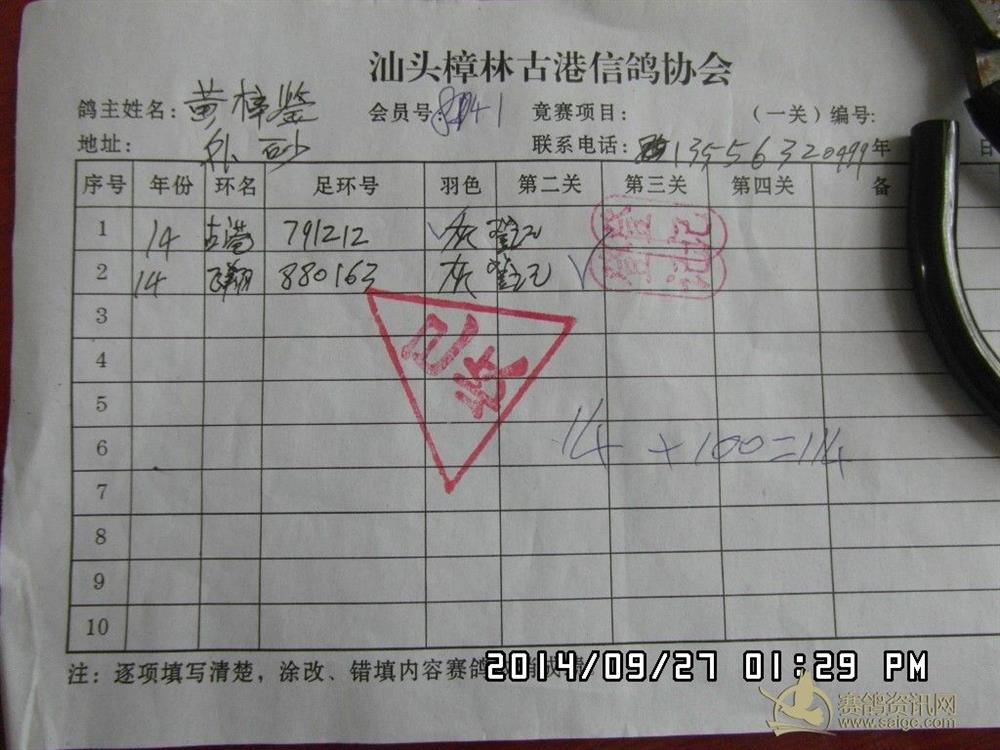 汕头樟林古港信鸽协会
鸽主姓名：黄梓鉴 会员号: 8141 竞赛项目： （一关）编号:
地址： 外砂 联系电话：13556320499 年 日
序号 年份 环名 足环号 羽色 第二关 第三关 第四关 备
1 14 古港 791212 灰 登记
2 14 飞翔 880163 灰 登记
3
4
5
6 14+100=114
7
8
9
10
已收
注：逐项填写清楚，涂改、错填内容赛鸽
2014/09/27 01:29 PM
赛鸽资讯网
www.saigc.com